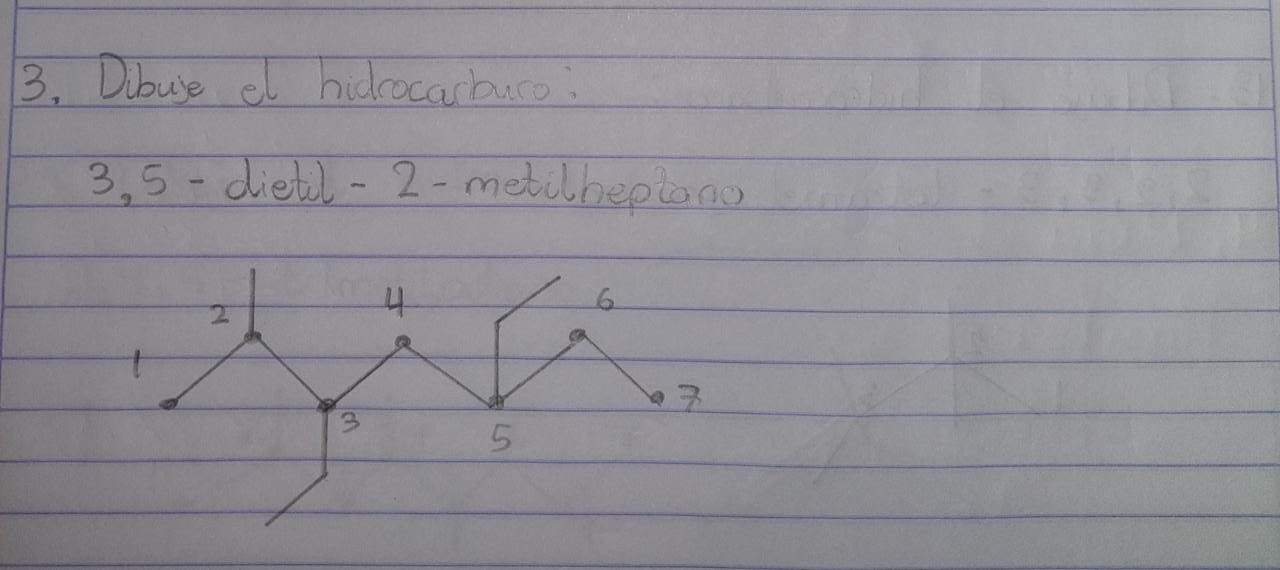 3. Dibuje el hidrocarburo:
3,5 - dietil - 2 - metilheptano
1 2 3 4 5 6 7